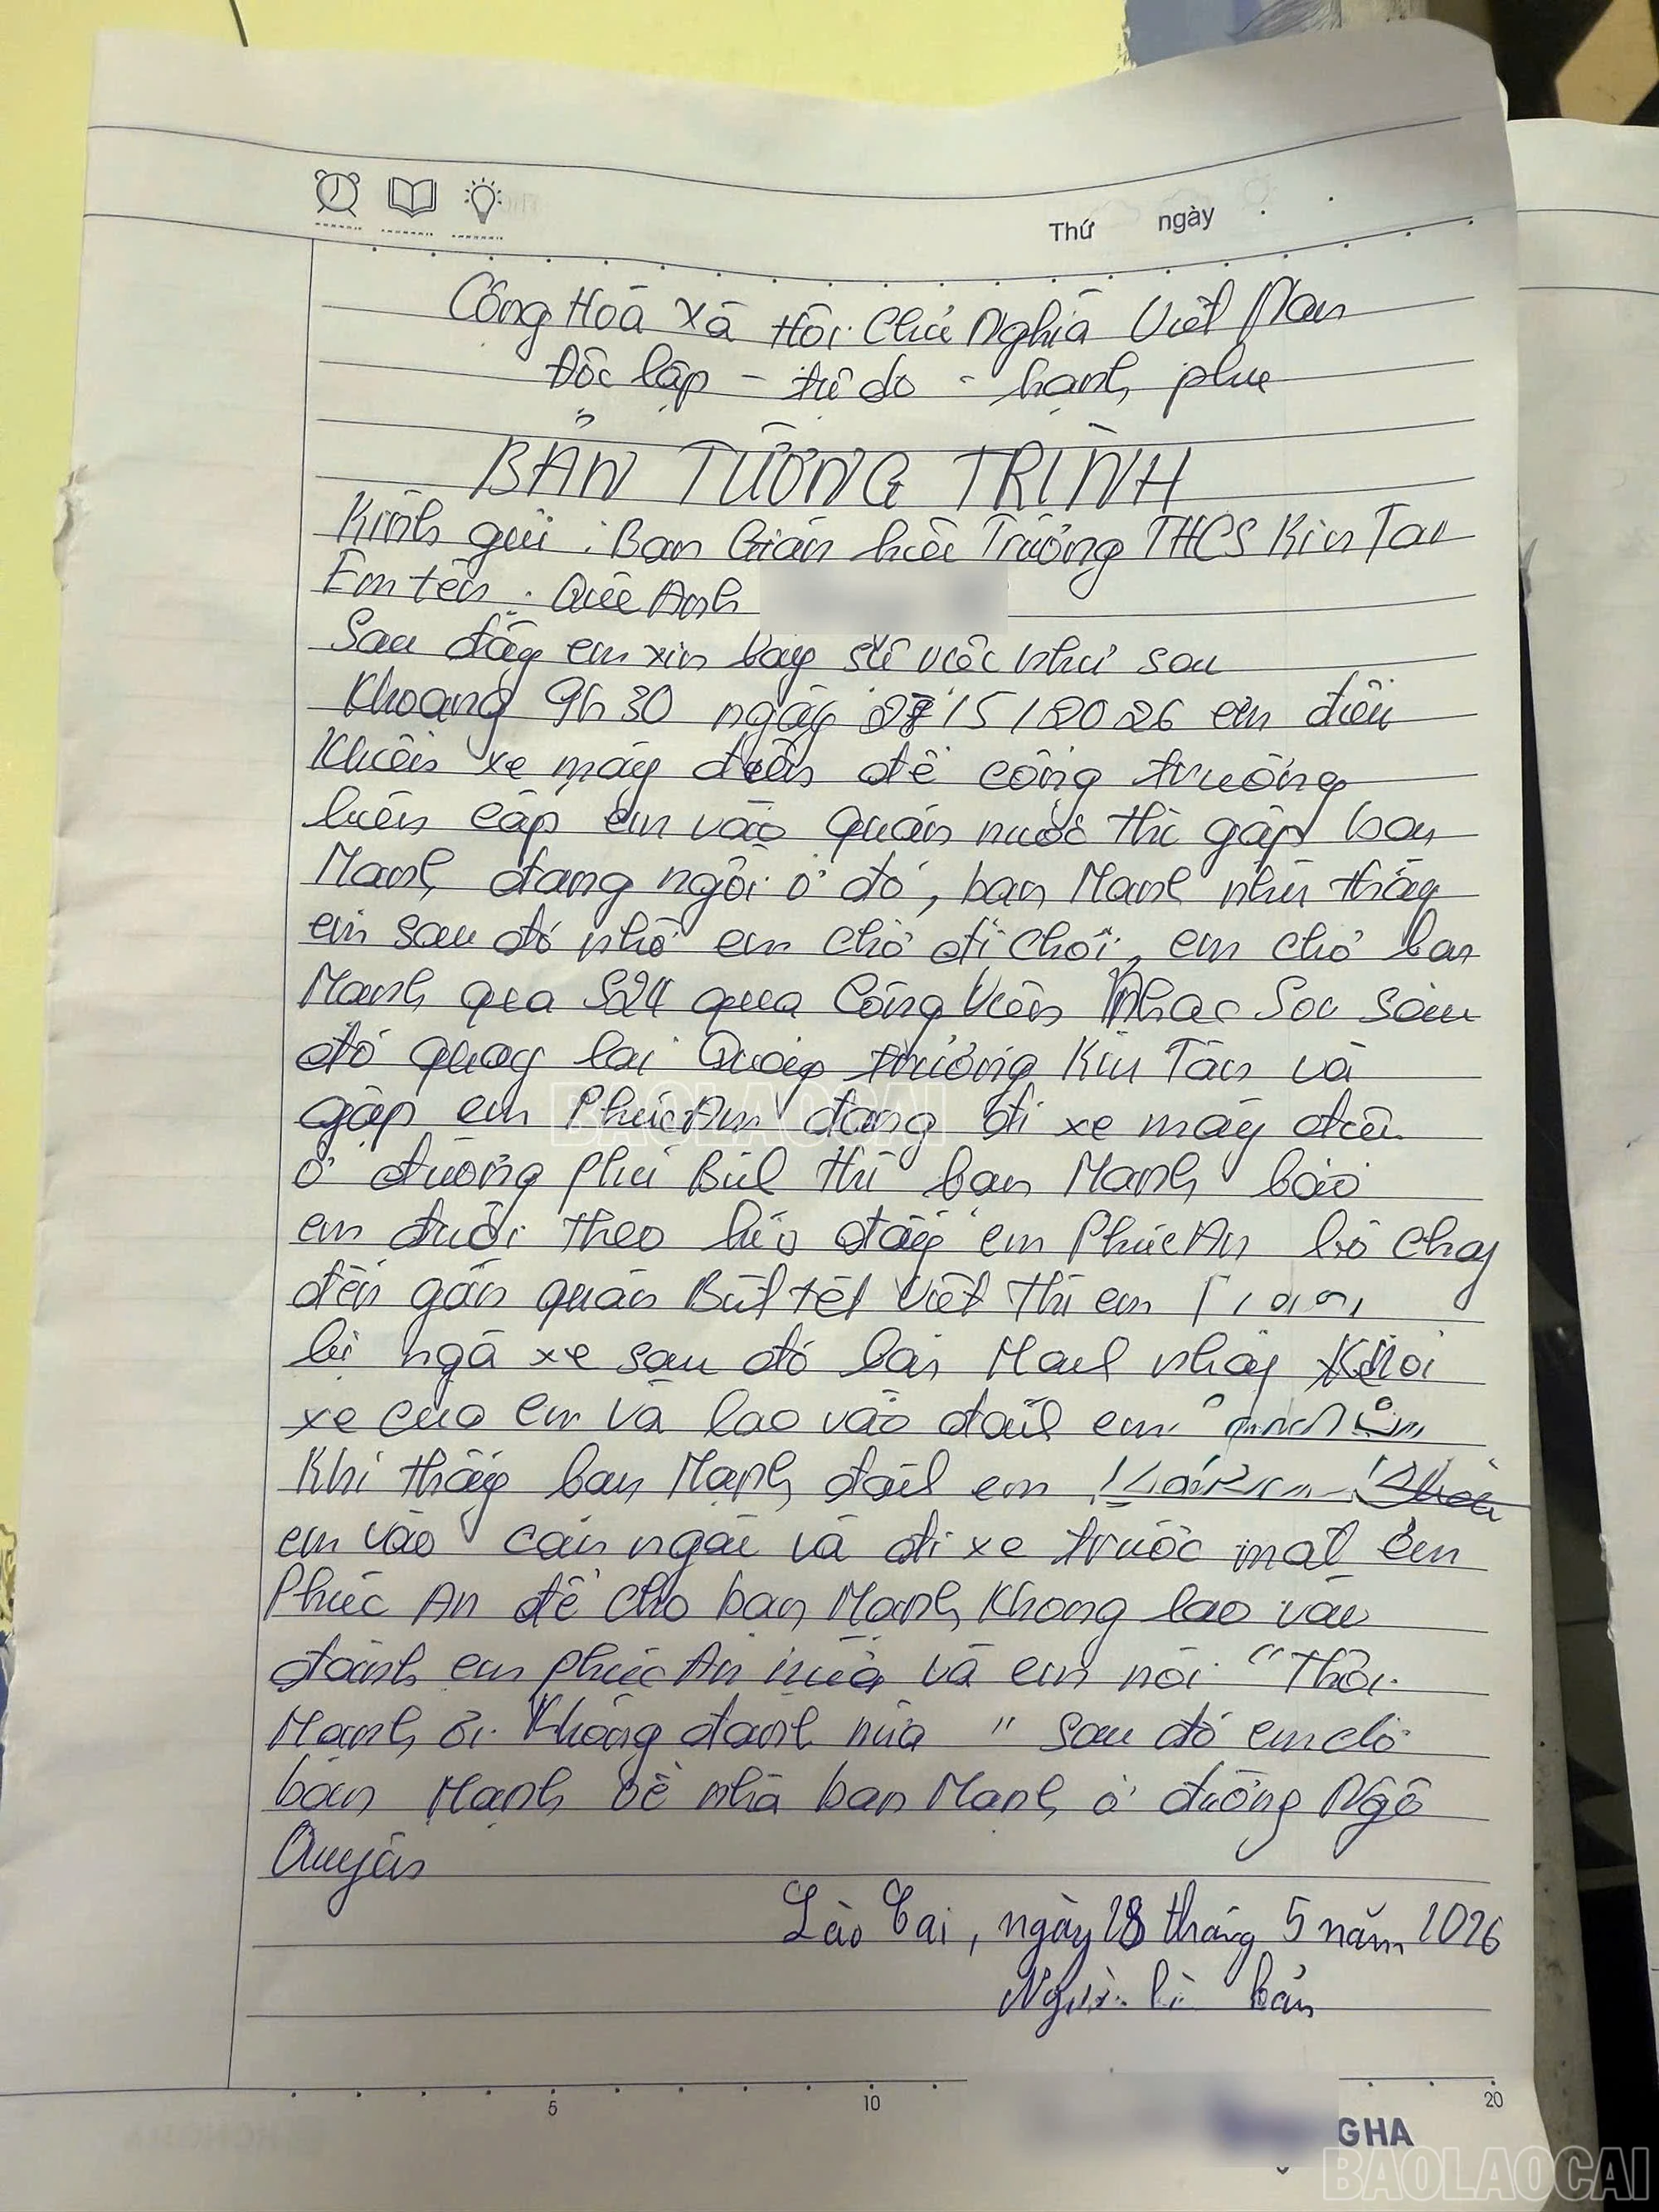 Thứ ngày
Công Hoà Xã Hôi Chủ Nghĩa Việt Nam
Độc lập - tự do - hạnh phuc
BẢN TƯỜNG TRÌNH
Kính gửi : Ban Giám hiệu Trường THCS Kim Tan
Em tên : Quê Anh
Sau đây em xin bay sự viêc như sau
Khoang 9h30 ngày 27/5/2026 em điêu
Khiển xe máy điện đê công trường
liên cấp em vào quán nước thì gặp ban
Manh đang ngồi ở đó, ban Manh nhìn thấy
em sau đó nhờ em chở đi chơi, em chở ban
Manh qua S24 qua Công Viên Nhac Sơn sau
đó quay lai Quang trường Kim Tân và
gặp em Phúc An đang đi xe máy điên
ở đường Phu Bul thì ban Manh bảo
em đuổi theo lúc đấy em Phúc An bỏ chay
đến gần quán Bút tét Việt thì em
bị ngã xe sau đó bạn Manh nhảy Khỏi
xe của em và lao vào đanh em
Khi thấy ban Mạnh đanh em
em vào can ngăn và đi xe trước mặt em
Phúc An để cho bạn Mạnh Khong lao vào
đánh em phúc An nưa và em nói "Thôi
Manh ơi Không đanh nưa" sau đó em chở
bạn Mạnh về nhà ban Manh ở đường Ngô
Quyên
Lào Cai, ngày 28 tháng 5 năm 2026
Người bản
5 10 20
GHA
BAOLAOCAI
BAOLAOCAI